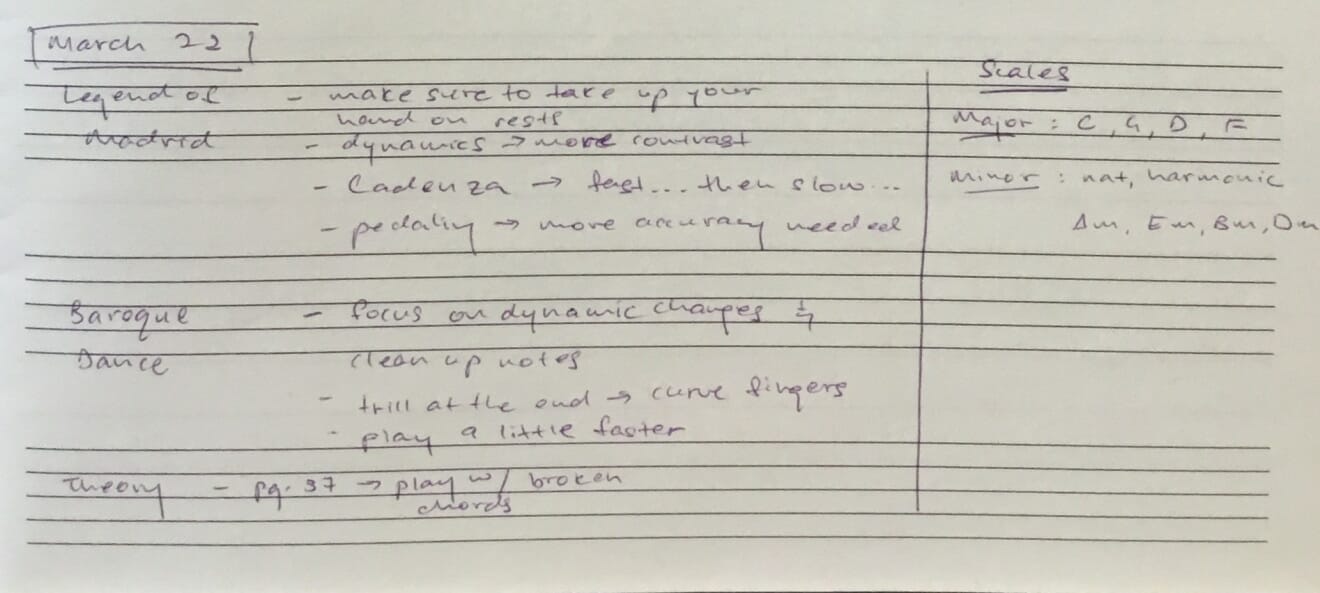 March 22
Legend of - make sure to take up your
hand on rests
Madrid - dynamics → more contrast
- Cadenza → fast... then slow...
- pedaling → more accuracy needed
Baroque - focus on dynamic changes &
Dance clean up notes
- trill at the end → curve fingers
- play a little faster
Theory - pg. 37 → play w/ broken
chords
Scales
Major : C, G, D, F
Minor : nat, harmonic
Am, Em, Bm, Dm